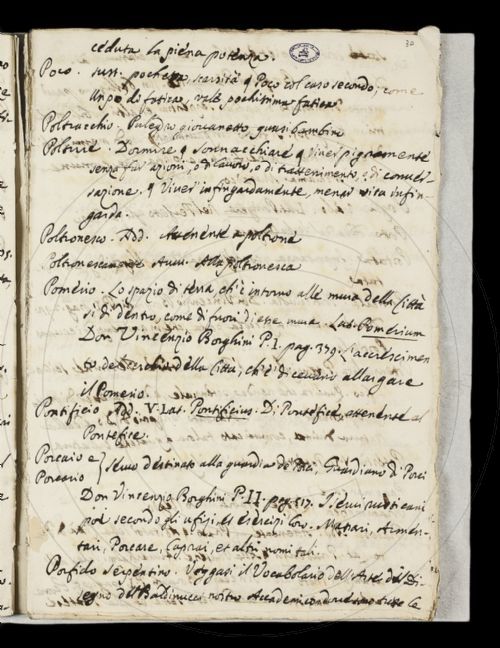 30
ceduta la piena potenza.
Poco. sust. pochezza scarsità q Poco col caso secondo, come
un po' di fatica, vale pochissima fatica
Poltracchio. Puledro giovanetto, quasi bambino
Poltrire. Dormire q sonnacchiare q viver pigramente
senza far azioni, o di lavoro, o di trattenimento, o di conver-
sazione. q Viver infingardamente, menar vita infin-
garda.
Poltronesco. Add. Attenente a poltrone
Avv. Alla poltronesca
Pomerio. Lo spazio di terra, ch'è intorno alle mura della Città
sì di dentro, come di fuori di esse mura. Lat. Pomerium
Don Vincenzio Borghini P. I. pag. 379. L'accrescimen
to del cerchio della Città, ch'è dicevano allargare
il Pomerio.
Pontificio Add. V. Lat. Pontificius. Di Pontefice, attenente al
Pontefice.
Porcaio e
Porcaro } Servo destinato alla guardia de' Porci, Guardiano di Porci
Don Vincenzio Borghini P. II. pag. 517. I servi rusticani
poi secondo gli ufizj, et esercizj loro. Armen-
tari, Porcare, Caprai, et altri nomi tali.
Porfido serpentino. Veggasi il Vocabolario dell'Arte del Di
segno del Baldinucci nostro Accademico tutte le